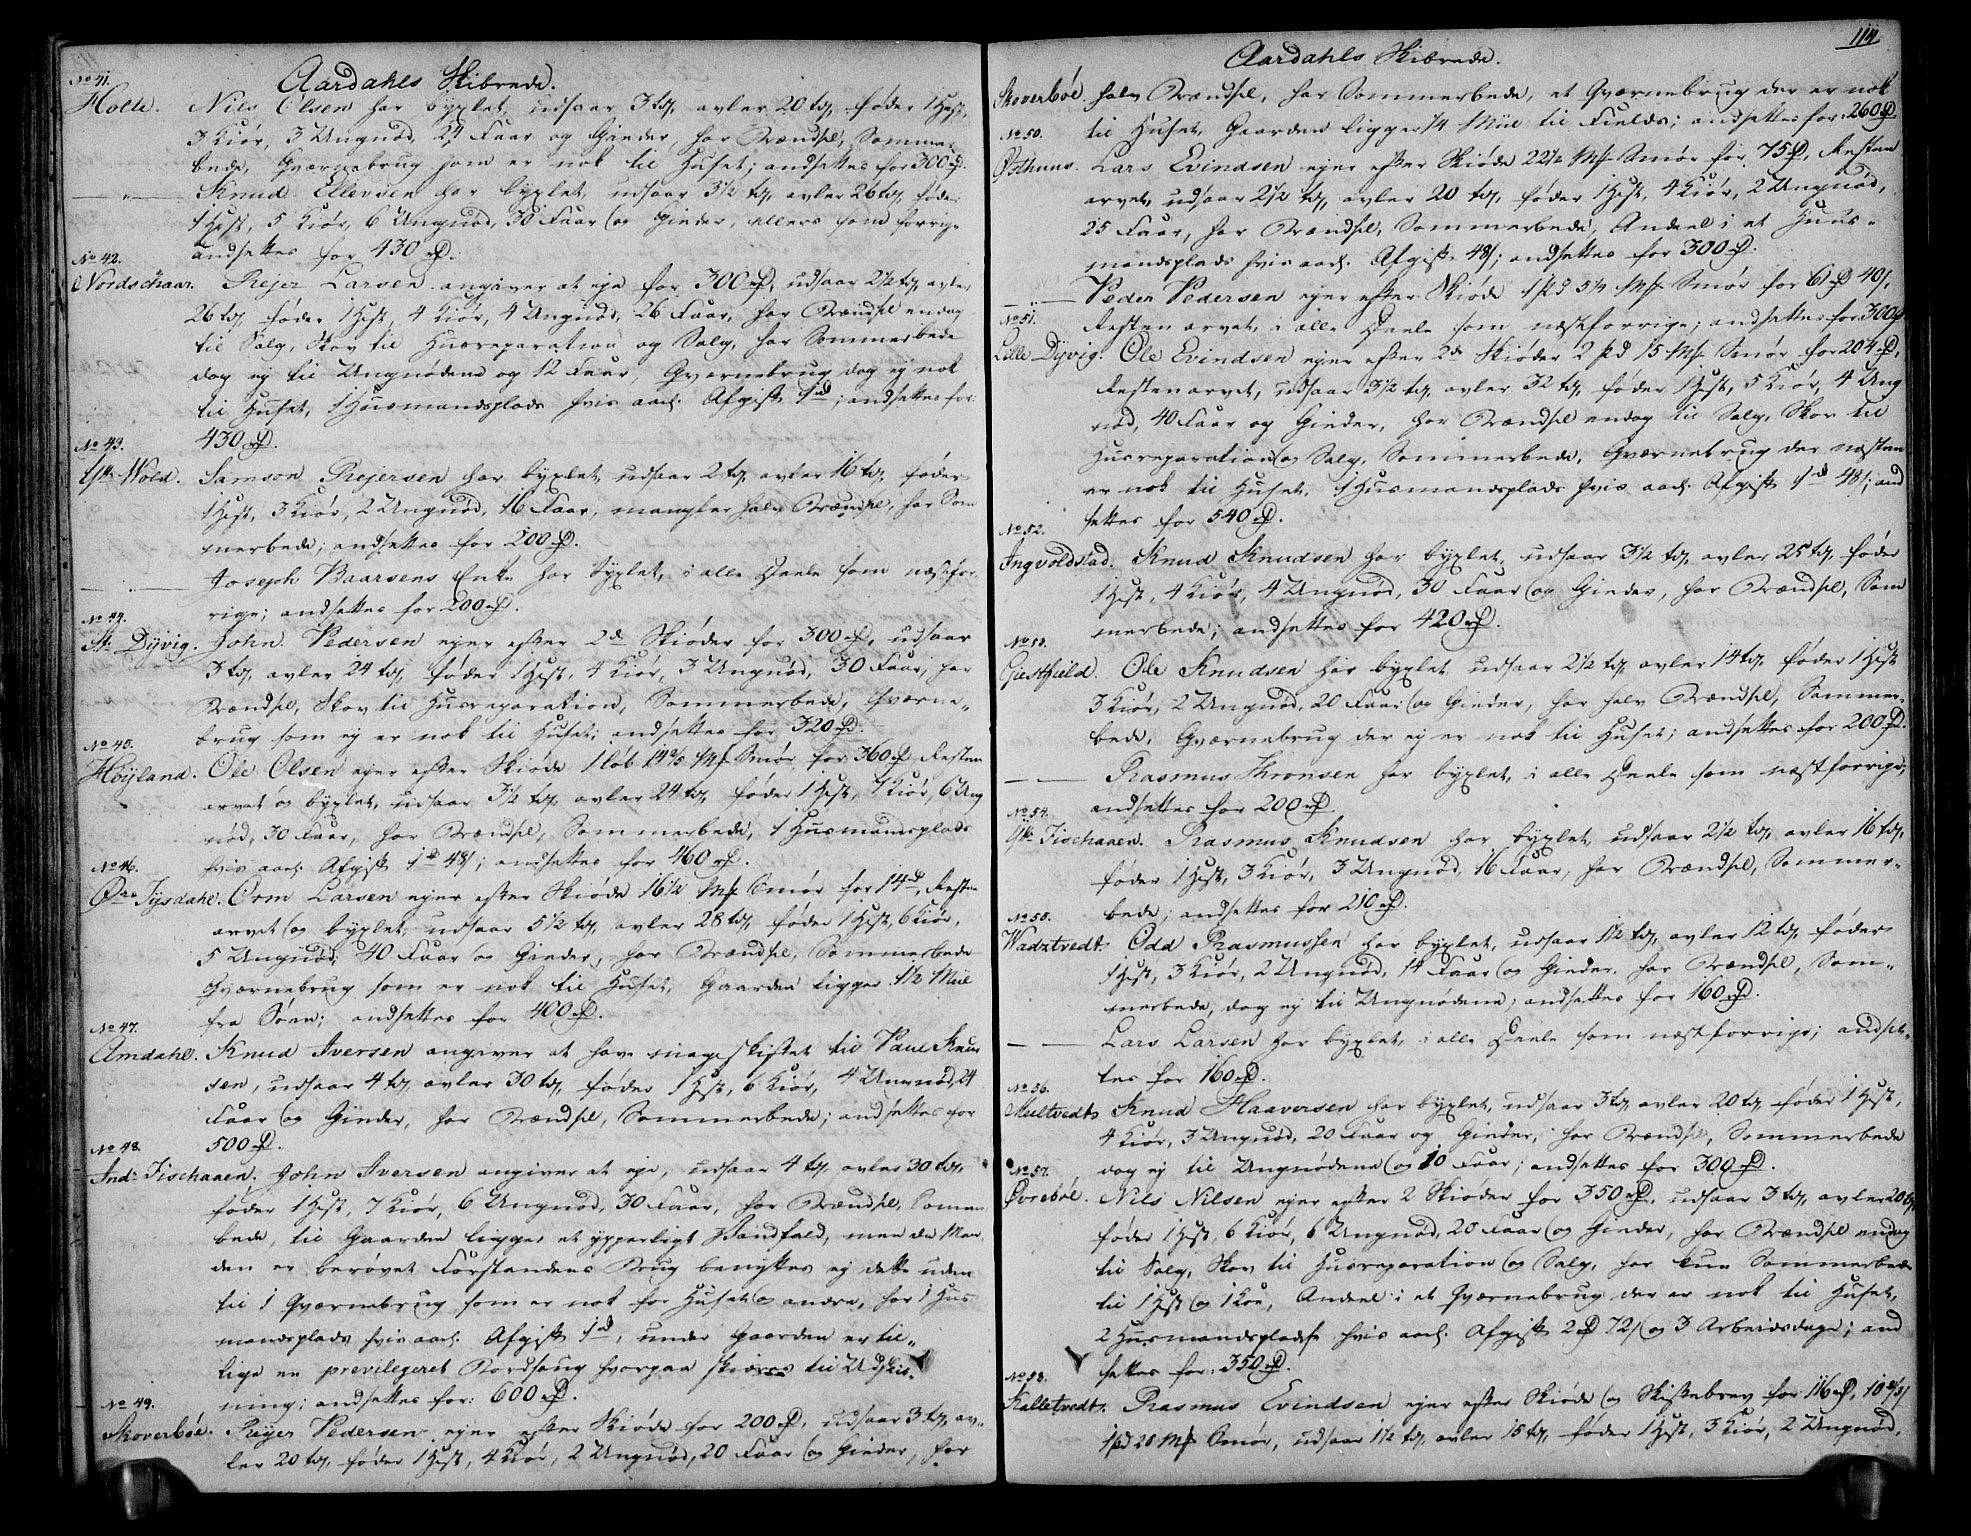 Aardahls Skibrede.
No 41.
Holle. Nils Olsen har byxlet, udsaar 3 tdr, avler 20 tdr, føder 1 Hest,
3 Kiør, 3 Ungnød, 24 Faar og Gieder, har Brændsel, Sommer
bede, Qværnebrug som er nok til Huset; andsettes for 300 rd.
— " — Knud Ellevsen har byxlet, udsaar 3 1/2 tdr, avler 26 tdr, føder
1 Hest, 5 Kiør, 6 Ungnød, 30 Faar og Gieder, ellers som forrige
andsettes for 430 rd.
No 42.
Nordschaar. Rejer Larsen angiver at eje for 300 rd, udsaar 2 1/2 tdr, avler
26 tdr, føder 1 Hest, 4 Kiør, 4 Ungnød, 26 Faar, har Brændsel endog
til Salg, Skov til Husreparation og Salg, har Sommerbede
dog ej til Ungnødene og 12 Faar, Qværnebrug dog ej nok
til Huset, 1 Husmandsplads hvis aarl. Afgift 1 rd; andsettes for
430 rd.
No 43.
Ytr. Wold. Samson Rejersen har byxlet, udsaar 2 tdr, avler 16 tdr, føder
1 Hest, 3 Kiør, 2 Ungnød, 16 Faar, mangler halv Brændsel, har Som
merbede; andsettes for 200 rd.
— " — Joseph Baarsens Enke har byxlet, i alle Deele som næstfor
rige; andsettes for 200 rd.
No 44.
St. Dÿvig. John Pedersen ejer efter 2de Skiøder for 300 rd, udsaar
3 tdr, avler 24 tdr, føder 1 Hest, 4 Kiør, 3 Ungnød, 30 Faar, har
Brændsel, Skov til Husreparation, Sommerbede, Qværne„
brug som ej er nok til Huset; andsettes for 320 rd.
No 45.
Høÿland. Ole Olsen ejer efter Skiøde 1 Løb 14 2/5 Mrk Smør for 360 rd, Resten
arvet og byxlet, udsaar 3 1/2 tdr, avler 24 tdr, føder 1 Hest, 7 Kiør, 6 Ung
nød, 30 Faar, har Brændsel, Sommerbede, 1 Husmandsplads
hvis aarl. Afgift 1 rd 48 s; andsettes for 460 rd.
No 46.
Øvre Tysdahl. Orm Larsen ejer efter Skiøde 16 1/2 Mrk Smør for 14 rd, Resten
arvet og byxlet, udsaar 5 1/2 tdr, avler 28 tdr, føder 1 Hest, 6 Kiør,
5 Ungnød, 40 Faar og Gieder, har Brændsel, Sommerbede
Qværnebrug som er nok til Huset, Gaarden ligger 1 1/2 Miil
fra Søen; andsettes for 400 rd.
No 47.
Amdahl. Knud Iversen angiver at have mageskiftet til Paul Knud
sen, udsaar 4 tdr, avler 30 tdr, føder 1 Hest, 6 Kiør, 4 Ungnød, 24
Faar og Gieder, har Brændsel, Sommerbede; andsettes for
500 rd.
No 48.
Indr. Fischaaen. John Iversen angiver at eje, udsaar 4 tdr, avler 30 tdr,
føder 1 Hest, 7 Kiør, 6 Ungnød, 30 Faar, har Brændsel, Sommer
bede, til Gaarden ligger et ypperligt Vandfald, men da Man
den er berøvet Forstandens Brug benyttes ej dette uden
til 1 Qværnebrug som er nok for Huset og andre, har 1 Hus
mandsplads hvis aarl. Afgift 1 rd, under Gaarden er til„
lige en previlegeret Bordsaug hvorpaa skiæres til Udskib„
ning; andsettes for: 600 rd.
No 49.
Skoverbøe. Reÿer Pedersen ejer efter Skiøde for 200 rd, udsaar 3 tdr, av„
ler 20 tdr, føder 1 Hest, 4 Kiør, 2 Ungnød, 20 Faar og Gieder, har
114
Aardahls Skibrede.
Skoverbøe. halv Brændsel, har Sommerbede, et Qværnebrug der er nok
til Huset, Gaarden ligger 1/4 Miil til Fields; andsettes for 260 rd.
No 50.
Østhuus. Lars Evindsen ejer efter Skiøde 22 1/2 Mrk Smør for 75 rd, Resten
arvet, udsaar 2 1/2 tdr, avler 20 tdr, føder 1 Hest, 4 Kiør, 2 Ungnød,
25 Faar, har Brændsel, Sommerbede, Andeel i et Huus„
mandsplads hvis aarl. Afgift 48 s; andsettes for 300 rd.
— " — Peder Pedersen ejer efter Skiøde 1 pd 5 1/4 Mrk Smør for 61 rd 40 s,
Resten arvet, i alle Deele som næstforrige; andsettes for 300 rd
No 51.
Lille Dÿvig. Ole Evindsen ejer efter 2de Skiøder 2 pd 15 Mrk Smør for 204 rd,
Resten arvet, udsaar 3 1/2 tdr, avler 32 tdr, føder 1 Hest, 5 Kiør, 4 Ung
nød, 40 Faar og Gieder, har Brændsel endog til Salg, Skov til
Husreparation og Salg, Sommerbede, Qværnebrug der næsten
er nok til Huset, 1 Husmandsplads hvis aarl. Afgift 1 rd 48 s; and
settes for 540 rd.
No 52.
Ingvoldstad. Knud Knudsen har byxlet, udsaar 3 1/2 tdr, avler 25 tdr, føder
1 Hest, 4 Kiør, 4 Ungnød, 30 Faar og Gieder, har Brændsel, Som
merbede; andsettes for 420 rd.
No 53.
Giestfield. Ole Knudsen har byxlet, udsaar 2 1/2 tdr, avler 14 tdr, føder 1 Hest
3 Kiør, 2 Ungnød, 20 Faar og Gieder, har halv Brændsel, Sommer„
bede, Qværnebrug der ej er nok til Huset; andsettes for 200 rd.
— — Rasmus Thronsen har byxlet, i alle Deele som næstforrige;
andsettes for 200 rd.
No 54.
Ytr. Fischaaen. Rasmus Knudsen har byxlet, udsaar 2 1/2 tdr, avler 16 tdr,
føder 1 Hest, 3 Kiør, 3 Ungnød, 16 Faar, har Brændsel, Sommer„
bede; andsettes for 210 rd.
No 55.
Wadztvedt. Odd Rasmussen har byxlet, udsaar 1 1/2 tdr, avler 12 tdr, føder
1 Hest, 3 Kiør, 2 Ungnød, 14 Faar og Gieder, har Brændsel, Som„
merbede, dog ej til Ungnødene; andsettes for 160 rd.
— — Lars Larsen har byxlet, i alle Deele som næstforrige; andset„
tes for 160 rd.
No 56.
Meeltvedt. Knud Haaversen har byxlet, udsaar 3 tdr, avler 20 tdr, føder 1 Hest,
4 Kiør, 3 Ungnød, 20 Faar og Gieder, har Brændsel, Sommerbede
dog ej til Ungnødene og 10 Faar; andsettes for 300 rd.
No 57.
Øvrebøe. Nils Nilsen ejer efter 2 Skiøder for 350 rd, udsaar 3 tdr, avler 20 tdr,
føder 1 Hest, 6 Kiør, 6 Ungnød, 20 Faar og Gieder, har Brændsel endog
til Salg, Skov til Husreparation og Salg, har kun Sommerbede
til 1 Hest og 1 Koe, Andeel i et Qværnebrug der er nok til Huset,
2 Husmandspladse hvis aarl. Afgift 2 rd 72 s og 3 Arbeidsdage; and
settes for: 350 rd.
No 58.
Kalletvedt. Rasmus Evindsen ejer efter Skiøde og Skiftebrev for 116 rd, 10 2/3 s
1 pd 20 Mrk Smør, udsaar 1 1/2 tdr, avler 15 tdr, føder 1 Hest, 3 Kiør, 2 Ungnød,